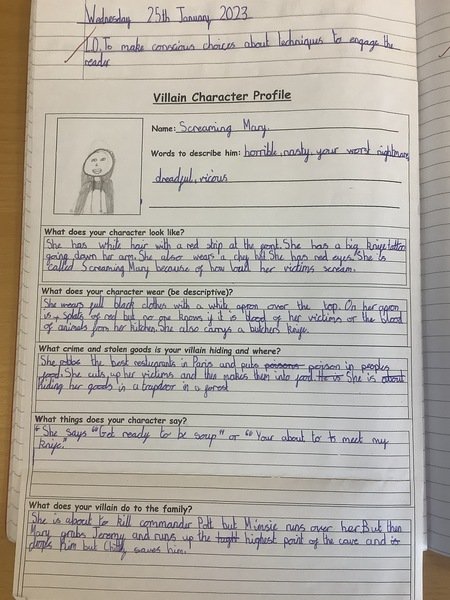 Wednesday 25th January 2023
I.O. To make conscious choices about techniques to engage the
reader
Villain Character Profile
Name: Screaming Mary.
Words to describe him: horrible, nasty, your worst nightmare
dreadful, vicous
What does your character look like?
She has white hair with a red strip at the front. She has a big knife tattoo
going down her arm. She also wears a chef hat. She has red eyes. She is
called Screaming Mary because of how loud her victims scream.
What does your character wear (be descriptive)?
She wears full black clothes with a white apron over the top. On her apron
is splats of red but no one knows if it is blood of her victims or the blood
of animals from her kitchen. She also carrys a butchers knife.
What crime and stolen goods is your villain hiding and where?
She the best resturants in Paris and puts poison in peoples
food. She cuts up her victims and this makes them into food. She is
hiding her goods in a trapdoor in a forest
What things does your character say?
"She says "Get ready to be soup" or "Your about to meet my
knife."
What does your villain do to the family?
She is about to kill commander Pott but Mimsie runs over her. But then
Mary grabs Jeremy and runs up the highest point of the cave and
drops him but Chitty saves him.